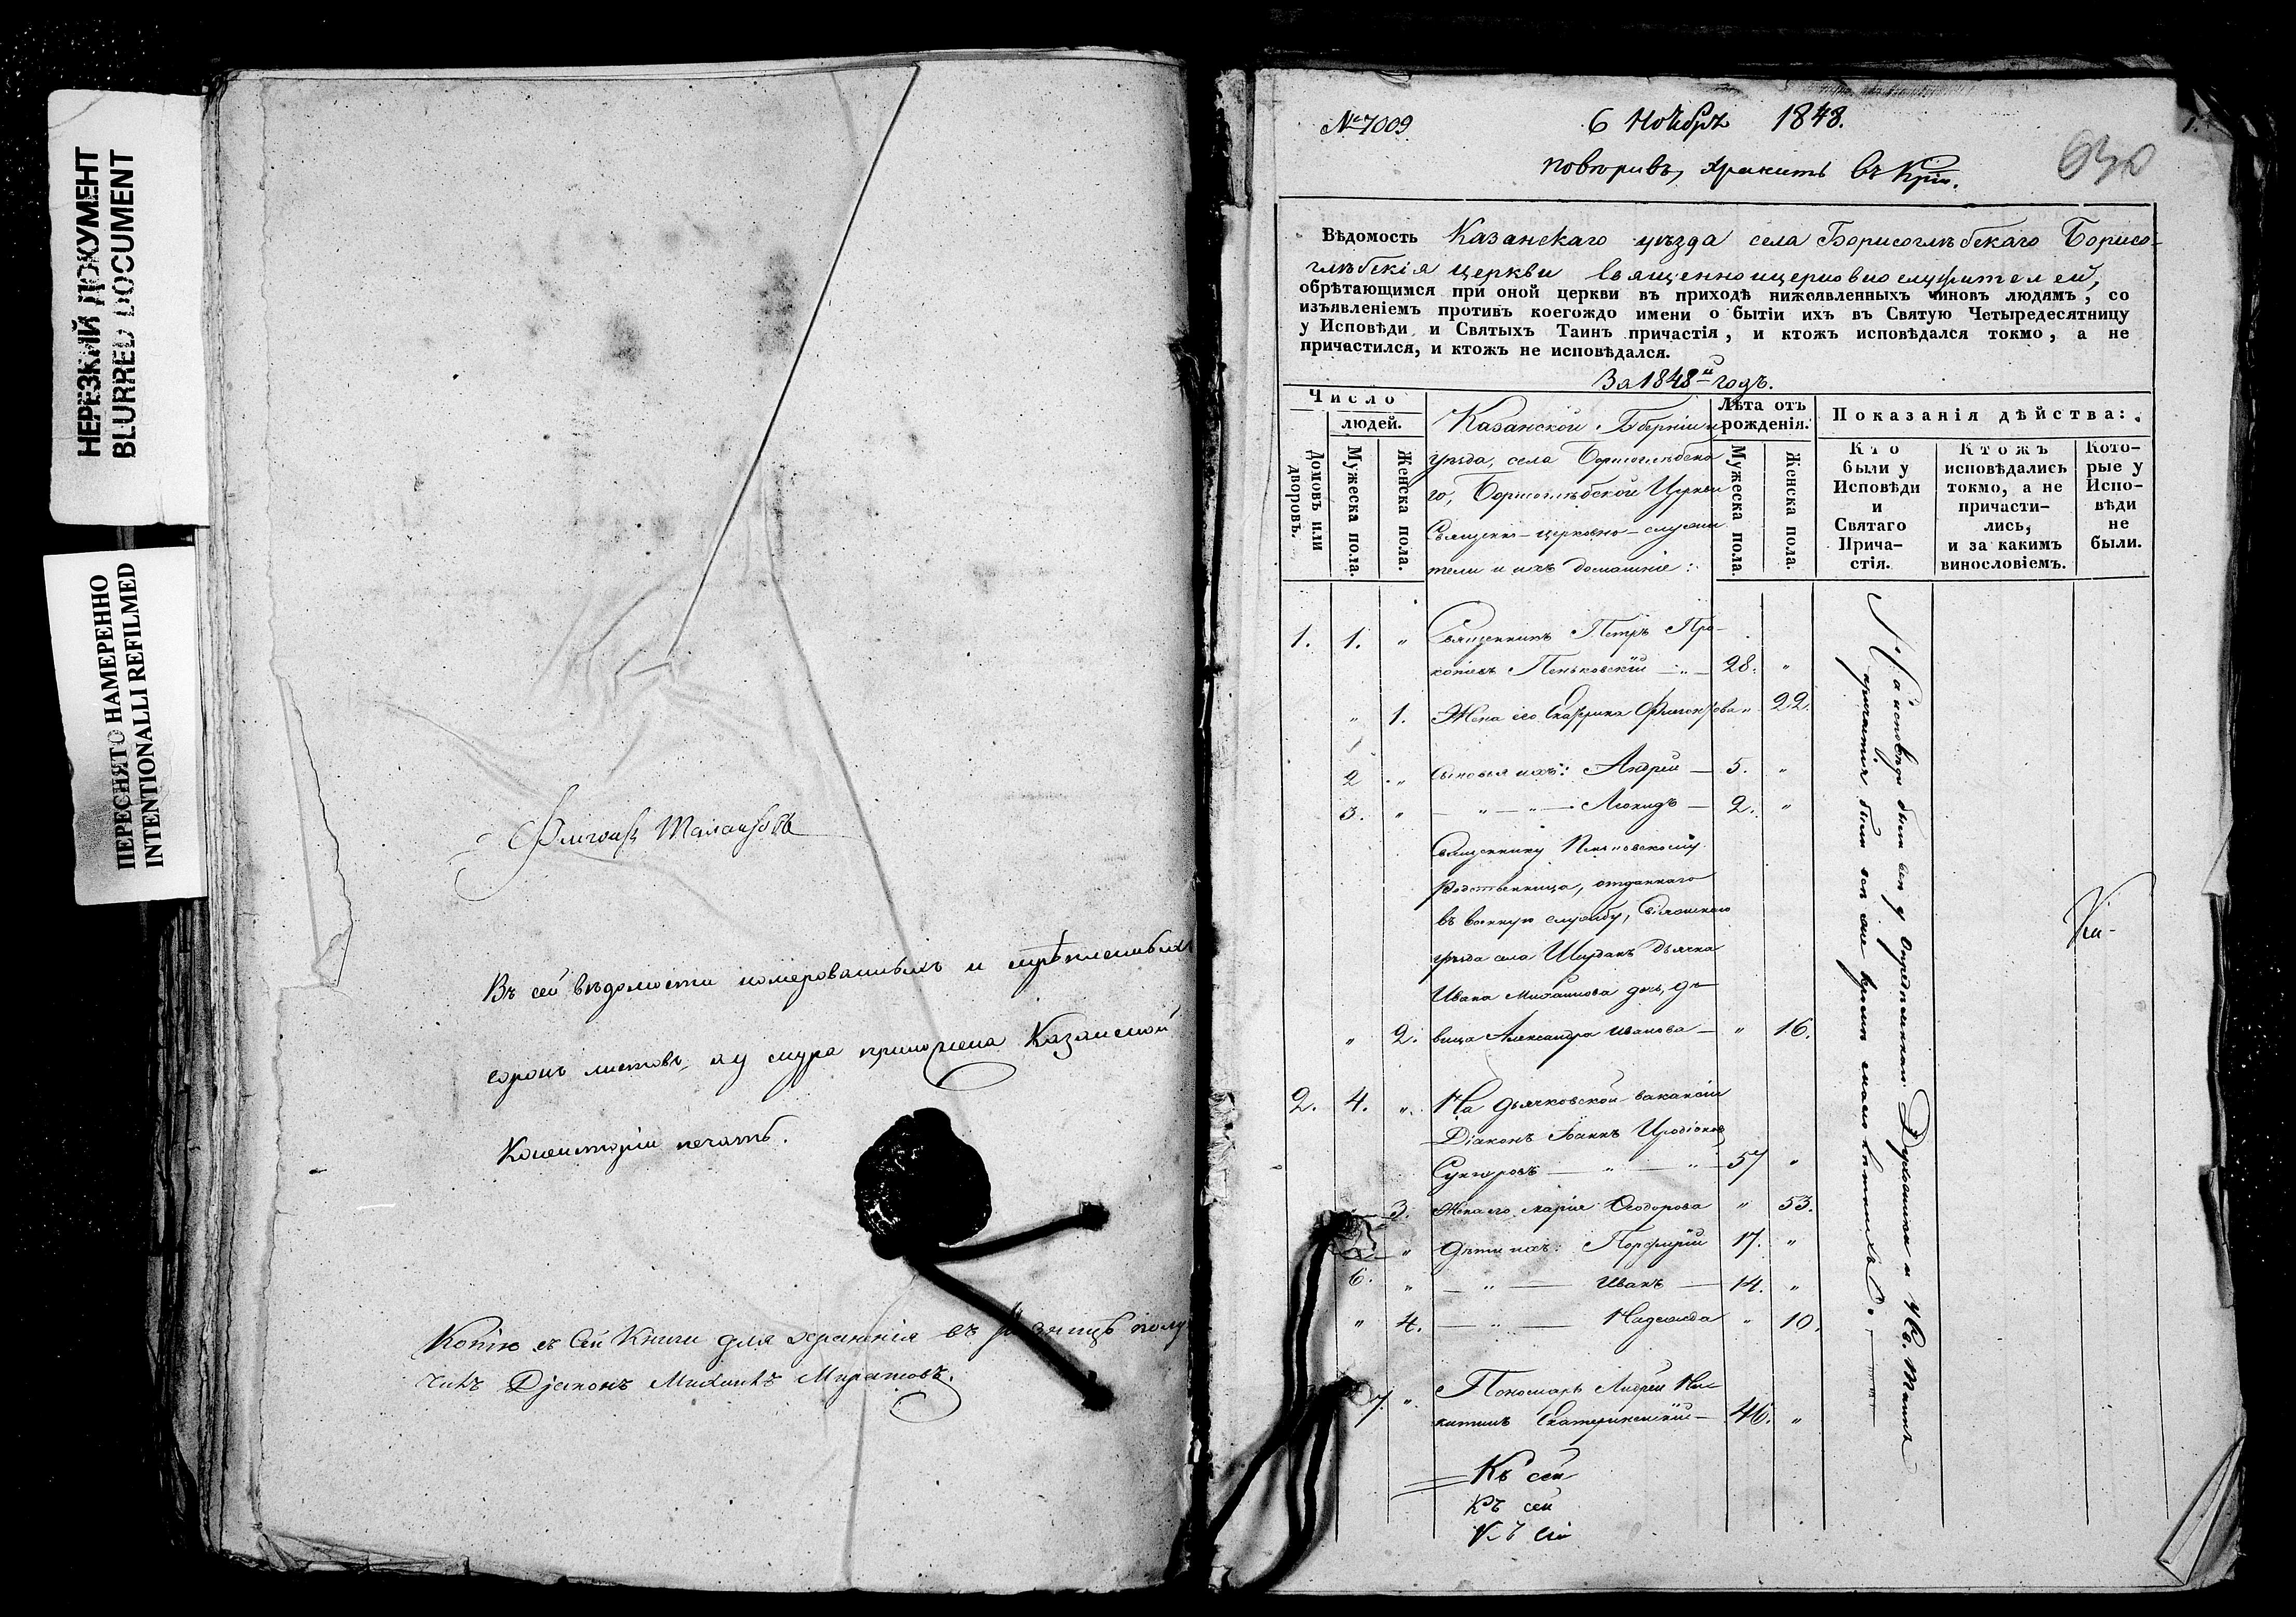 НЕРЕЗКИЙ ДОКУМЕНТ
BLURRED DOCUMENT
ПЕРЕСНЯТО НАМЕРЕННО
INTENTIONALLI REFILMED
Въ сей вѣдомости номерованныхъ и скрѣпленныхъ
сорокъ листовъ, къ шнура приложена Казанской
Консисторіи печать.
Копію съ Сей Книги для храненія въ ризницѣ полу
чилъ Діаконъ Михаилъ
№ 7009
6 Ноября 1848.
повѣривъ, хранить въ
630
1.
Вѣдомость Казанскаго уѣзда села Борисоглѣбскаго Борисо-
глѣбскія церкви священноицерковнослужителей,
обрѣтающимся при оной церкви въ приходѣ нижеявленныхъ чиновъ людямъ, со
изъявленіемъ противъ коегождо имени о бытіи ихъ въ Святую Четыредесятницу
у Исповѣди и Святыхъ Таинъ причастія, и ктожъ исповѣдался токмо, а не
причастился, и ктожъ не исповѣдался.
За 1848й годъ.
Число
людей.
Домовъ или дворовъ.
Мужеска пола.
Женска пола.
Казанской Губерніи и
уѣзда, села Борисоглѣбска
го, Борисоглѣбской Церкви
Священно-церковно-служи
тели и ихъ домашніе:
Лѣта отъ
рожденія.
Мужеска пола.
Женска пола.
Показанія дѣйства:
Кто
были у
Исповѣди
и
Святаго
Прича-
стія.
Ктожъ
исповѣдались
токмо, а не
причасти-
лись,
и за какимъ
винословіемъ.
Кото-
рые у
Испо-
вѣди
не
были.
1. 1. " Священникъ Петръ Про-
копіевъ Пеньковскій 28. "
" 1. Жена его Екатерина 22.
2 " Сыновья ихъ: Андрей — 5. "
3. " — " — " — Леонидъ — 2. "
Священнику Пеньковскому
родственница, отданнаго
въ военную службу, Свіяжскаго
уѣзда села Ширданъ Дьячка
Ивана Михайлова дочь, дѣ-
" 2. вица Александра Иванова — " 16.
2. 4. " На дьячковской вакансіи
Діаконъ Іоаннъ Иродіоновъ
Сунгуровъ — " — " — 57 "
3. Жена его Марія Ѳеодорова " 53.
" Дѣти ихъ: Порфирій 17. "
6. " — " — Иванъ — 14. "
" 4. — " — Надежда " 10.
7. " Пономарь Андрей Ни-
китинъ Екатерининскій — 46. "
На исповѣди были всѣ у опредѣленнаго Духовника и у Св. Таинъ
причастія были всѣ же кромѣ малолѣтнихъ
Къ сей
Къ сей
Къ сей